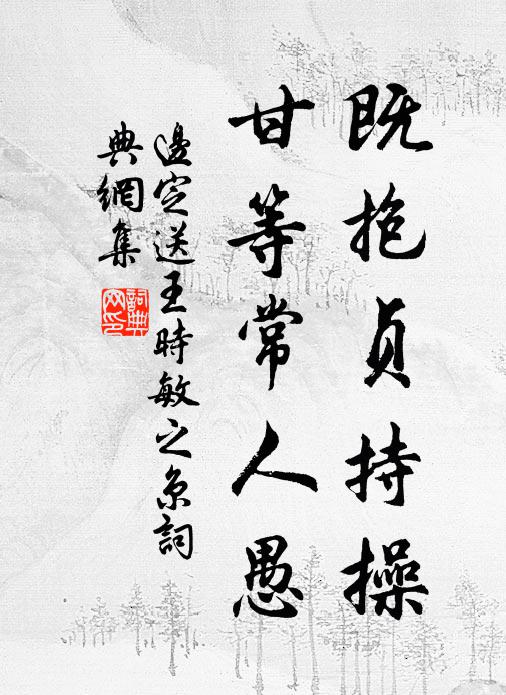 既抱贞持操
甘等常人愚
邊定送王時敏之京詞
典網集
詞典
网印